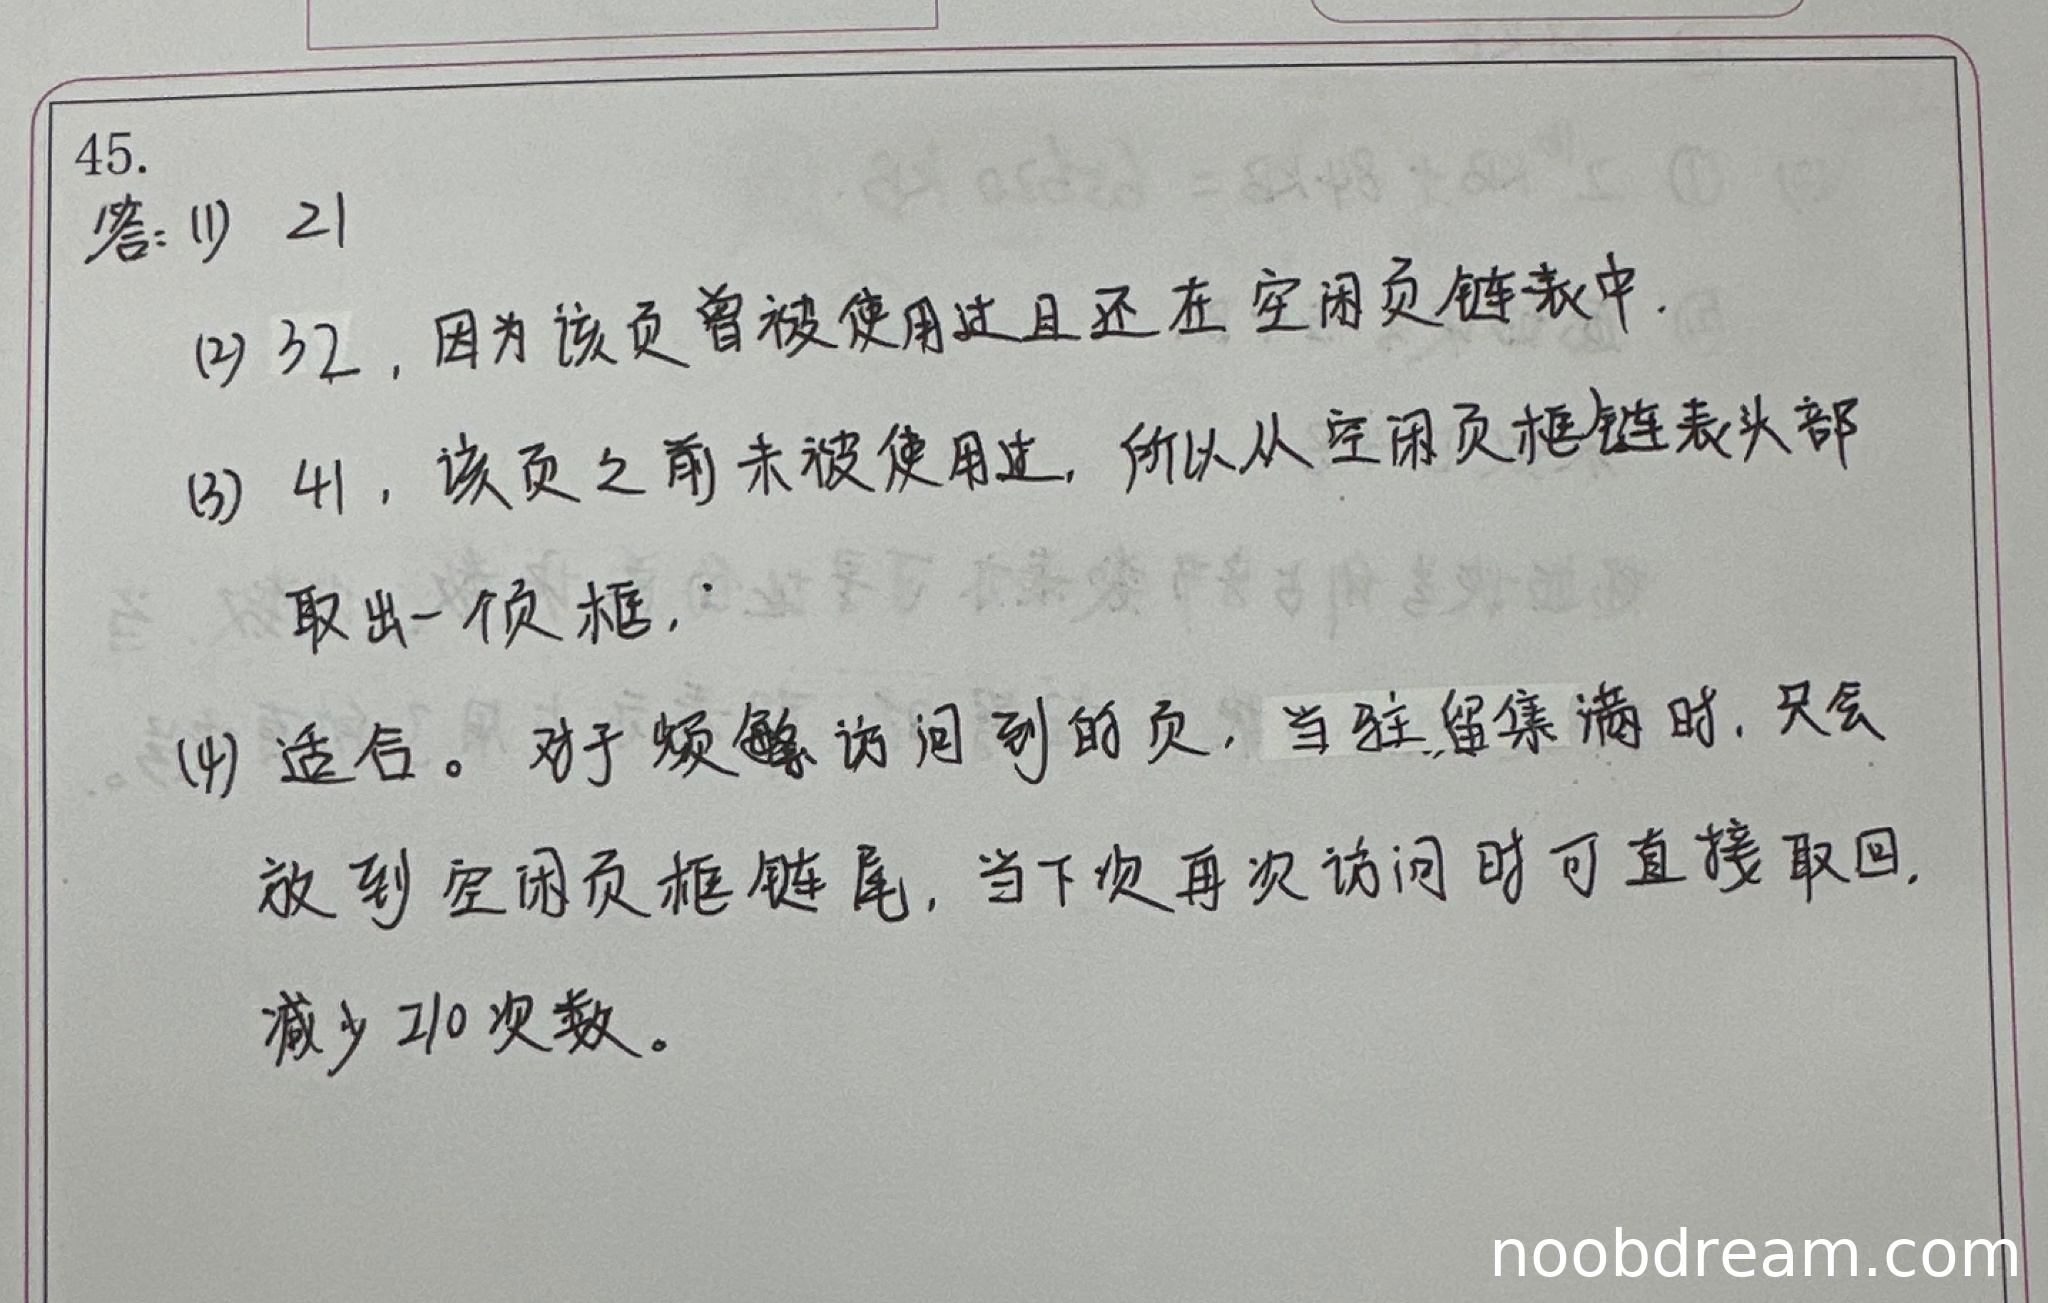 45.
答：(1) 21
(2) 32，因为该页曾被使用过且还在空闲页链表中.
(3) 41，该页之前未被使用过，所以从空闲页框链表头部
取出一个页框，
(4) 适合。对于频繁访问到的页，当驻留集满时，只会
放到空闲页框链尾，当下次再次访问时可直接取回，
减少I/O次数。
noobdream.com